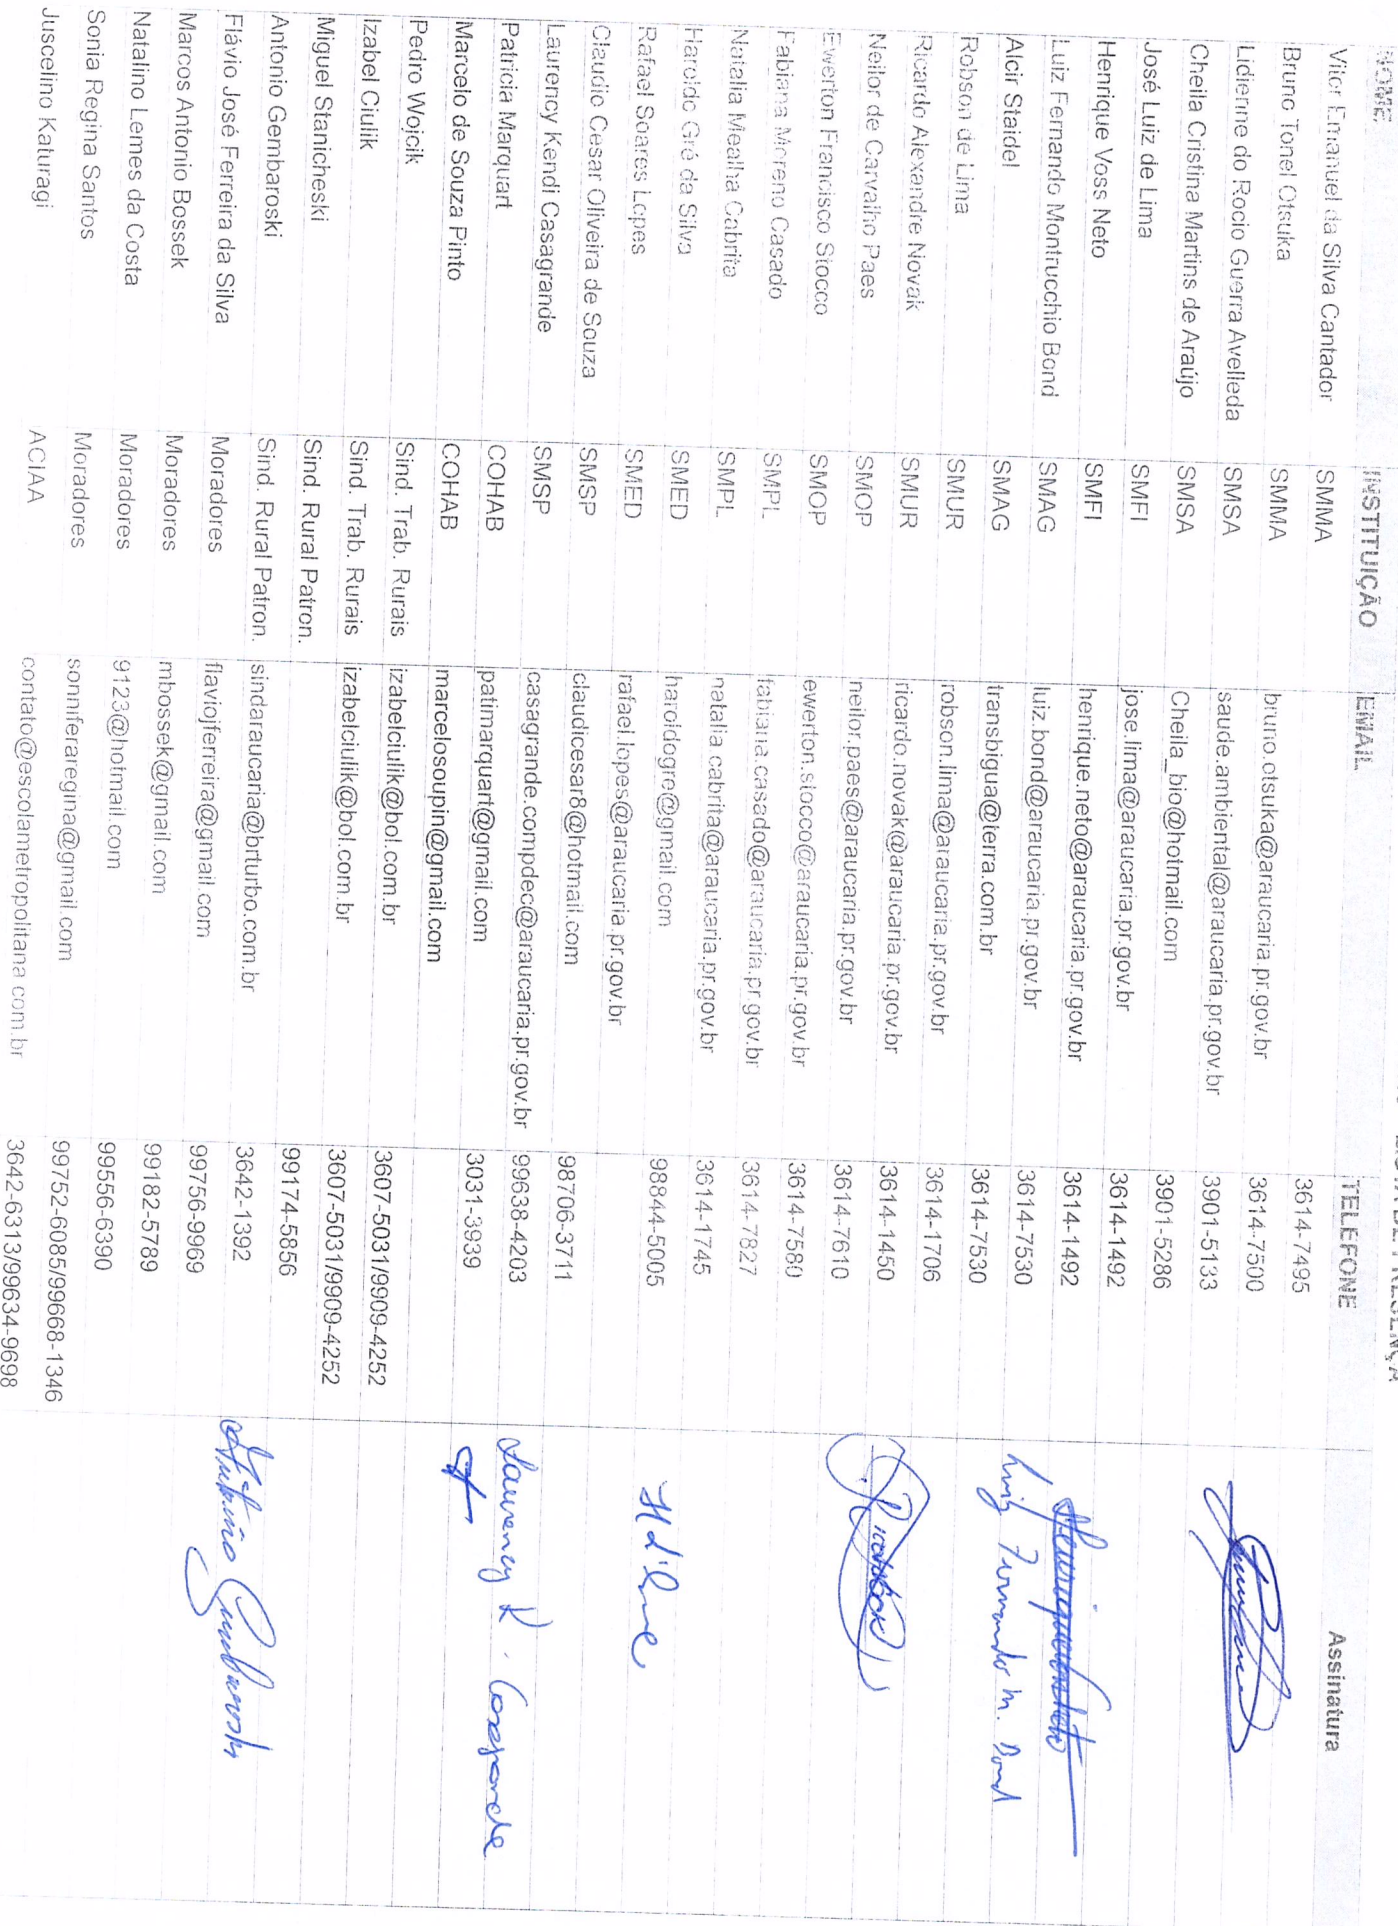 NOME INSTITUIÇÃO EMAIL TELEFONE Assinatura
Vitor Emanuel da Silva Cantador SMMA 3614-7495
Bruno Tonel Otsuka SMMA bruno.otsuka@araucaria.pr.gov.br 3614-7500
Lidienne do Rocio Guerra Avelleda SMSA saude.ambiental@araucaria.pr.gov.br 3901-5133
Cheila Cristina Martins de Araújo SMSA Cheila_bio@hotmail.com 3901-5286
José Luiz de Lima SMFI jose.lima@araucaria.pr.gov.br 3614-1492
Henrique Voss Neto SMFI henrique.neto@araucaria.pr.gov.br 3614-1492
Luiz Fernando Montrucchio Bond SMAG luiz.bond@araucaria.pr.gov.br 3614-7530 Luiz Fernando M. Bond
Alcir Staidel SMAG transbigua@terra.com.br 3614-7530
Robson de Lima SMUR robson.lima@araucaria.pr.gov.br 3614-1706
Ricardo Alexandre Novak SMUR ricardo.novak@araucaria.pr.gov.br 3614-1450
Neilor de Carvalho Paes SMOP neilor.paes@araucaria.pr.gov.br 3614-7610
Ewerton Francisco Stocco SMOP ewerton.stocco@araucaria.pr.gov.br 3614-7580
Fabiana Moreno Casado SMPL fabiana.casado@araucaria.pr.gov.br 3614-7827
Natalia Mealha Cabrita SMPL natalia.cabrita@araucaria.pr.gov.br 3614-1745
Haroldo Gré da Silva SMED haroldogre@gmail.com 98844-5005
Rafael Soares Lopes SMED rafael.lopes@araucaria.pr.gov.br
Claudio Cesar Oliveira de Souza SMSP claudicesar8@hotmail.com 98706-3711
Laurency Kendi Casagrande SMSP casagrande.compdec@araucaria.pr.gov.br 99638-4203 Laurency K. Casagrande
Patricia Marquart COHAB patimarquart@gmail.com 3031-3939
Marcelo de Souza Pinto COHAB marcelosoupin@gmail.com
Pedro Wojcik Sind. Trab. Rurais izabelciulik@bol.com.br 3607-5031/9909-4252
Izabel Ciulik Sind. Trab. Rurais izabelciulik@bol.com.br 3607-5031/9909-4252
Miguel Stanicheski Sind. Rural Patron. 99174-5856
Antonio Gembaroski Sind. Rural Patron. sindaraucaria@brturbo.com.br 3642-1392 Antonio Gembaroski
Flávio José Ferreira da Silva Moradores flaviojferreira@gmail.com 99756-9969
Marcos Antonio Bossek Moradores mbossek@gmail.com 99182-5789
Natalino Lemes da Costa Moradores 9123@hotmail.com 99556-6390
Sonia Regina Santos Moradores sonniferaregina@gmail.com 99752-6085/99668-1346
Juscelino Katuragi ACIAA contato@escolametropolitana.com.br 3642-6313/99634-9698